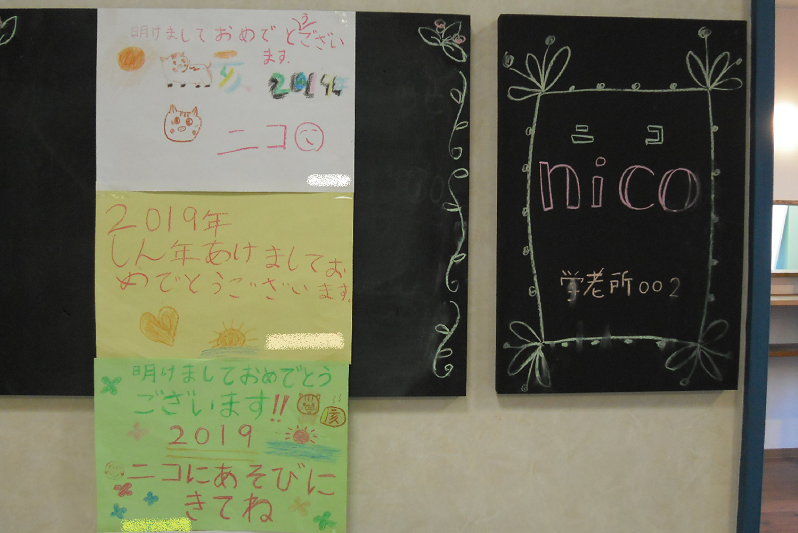 明けましておめでとうござい
ます。
亥
2019年
ニコ
2019年
しん年あけましてお
めでとうございます。
明けましておめでとう
ございます!!
亥
2019
ニコにあそびに
きてね
ニコ
nico
学老所002